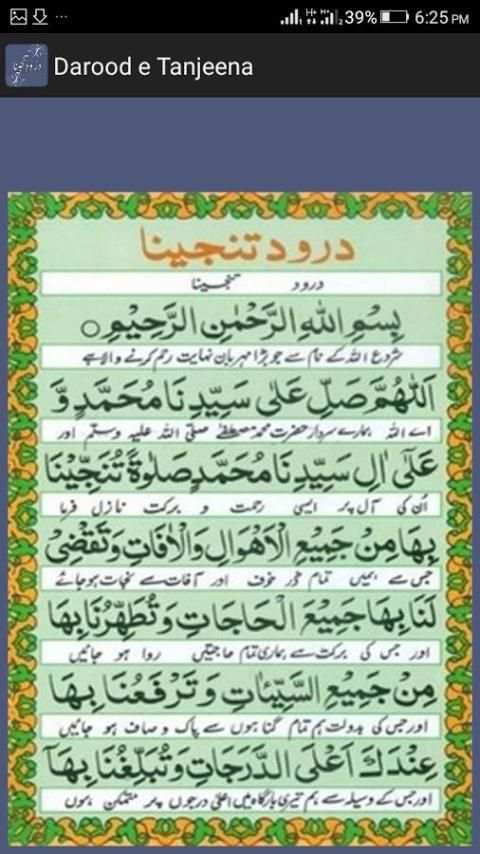 39% 6:25 PM
Darood e Tanjeena
درود تنجینا
درود تنجینا
بِسْمِ اللهِ الرَّحْمٰنِ الرَّحِيْمِ ○
شروع اللہ کے نام سے جو بڑا مہربان نہایت رحم کرنے والا ہے
اَللّٰهُمَّ صَلِّ عَلٰى سَيِّدِنَا مُحَمَّدٍ وَّ
اے اللہ ہمارے سردار حضرت محمد مصطفےٰ صلی اللہ علیہ وسلم اور
عَلٰٓى اٰلِ سَيِّدِنَا مُحَمَّدٍ صَلٰوةً تُنَجِّيْنَا
اُن کی آل پر ایسی رحمت و برکت نازل فرما
بِهَا مِنْ جَمِيْعِ الْاَهْوَالِ وَالْاٰفَاتِ وَتَقْضِىْ
جس سے ہمیں تمام ڈر خوف اور آفات سے نجات ہو جائے
لَنَا بِهَا جَمِيْعَ الْحَاجَاتِ وَتُطَهِّرُنَا بِهَا
اور جس کی برکت سے ہماری تمام حاجتیں روا ہو جائیں
مِنْ جَمِيْعِ السَّيِّئَاتِ وَتَرْفَعُنَا بِهَا
اور جس کی بدولت ہم تمام گناہوں سے پاک و صاف ہو جائیں
عِنْدَكَ اَعْلَى الدَّرَجَاتِ وَتُبَلِّغُنَا بِهَآ
اور جس کے وسیلہ سے ہم تیری بارگاہ میں اعلیٰ درجوں پر متمکن ہوں